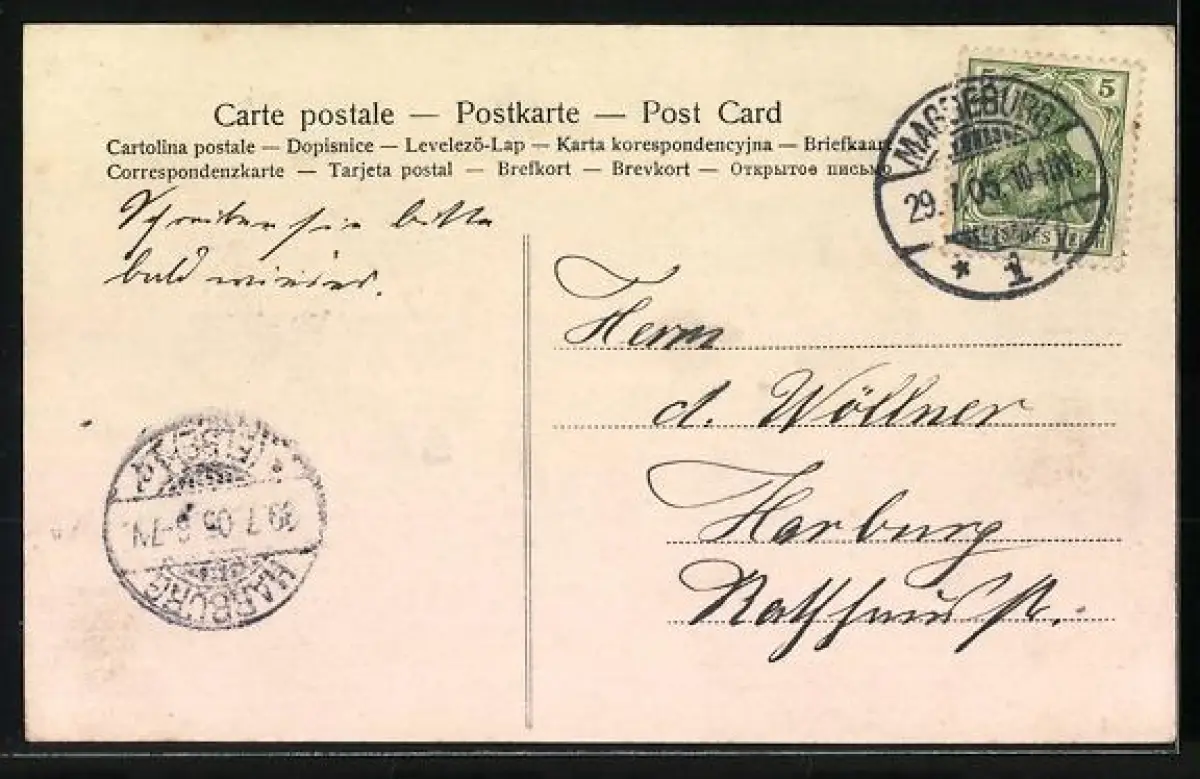 Carte postale — Postkarte — Post Card
Cartolina postale — Dopisnice — Levelező-Lap — Karta korespondencyjna — Briefkaart
Correspondenzkarte — Tarjeta postal — Brefkort — Brevkort — Открытое письмо
5 5
DEUTSCHES REICH
MAGDEBURG
29.7.05. 10-11N.
* 1
Schreiben sie bitte
bald wieder.
Herrn
d. Wöllner
Harburg
Rathhausstr.
HARBURG
30.7.05 6-7N.
(ELBE)